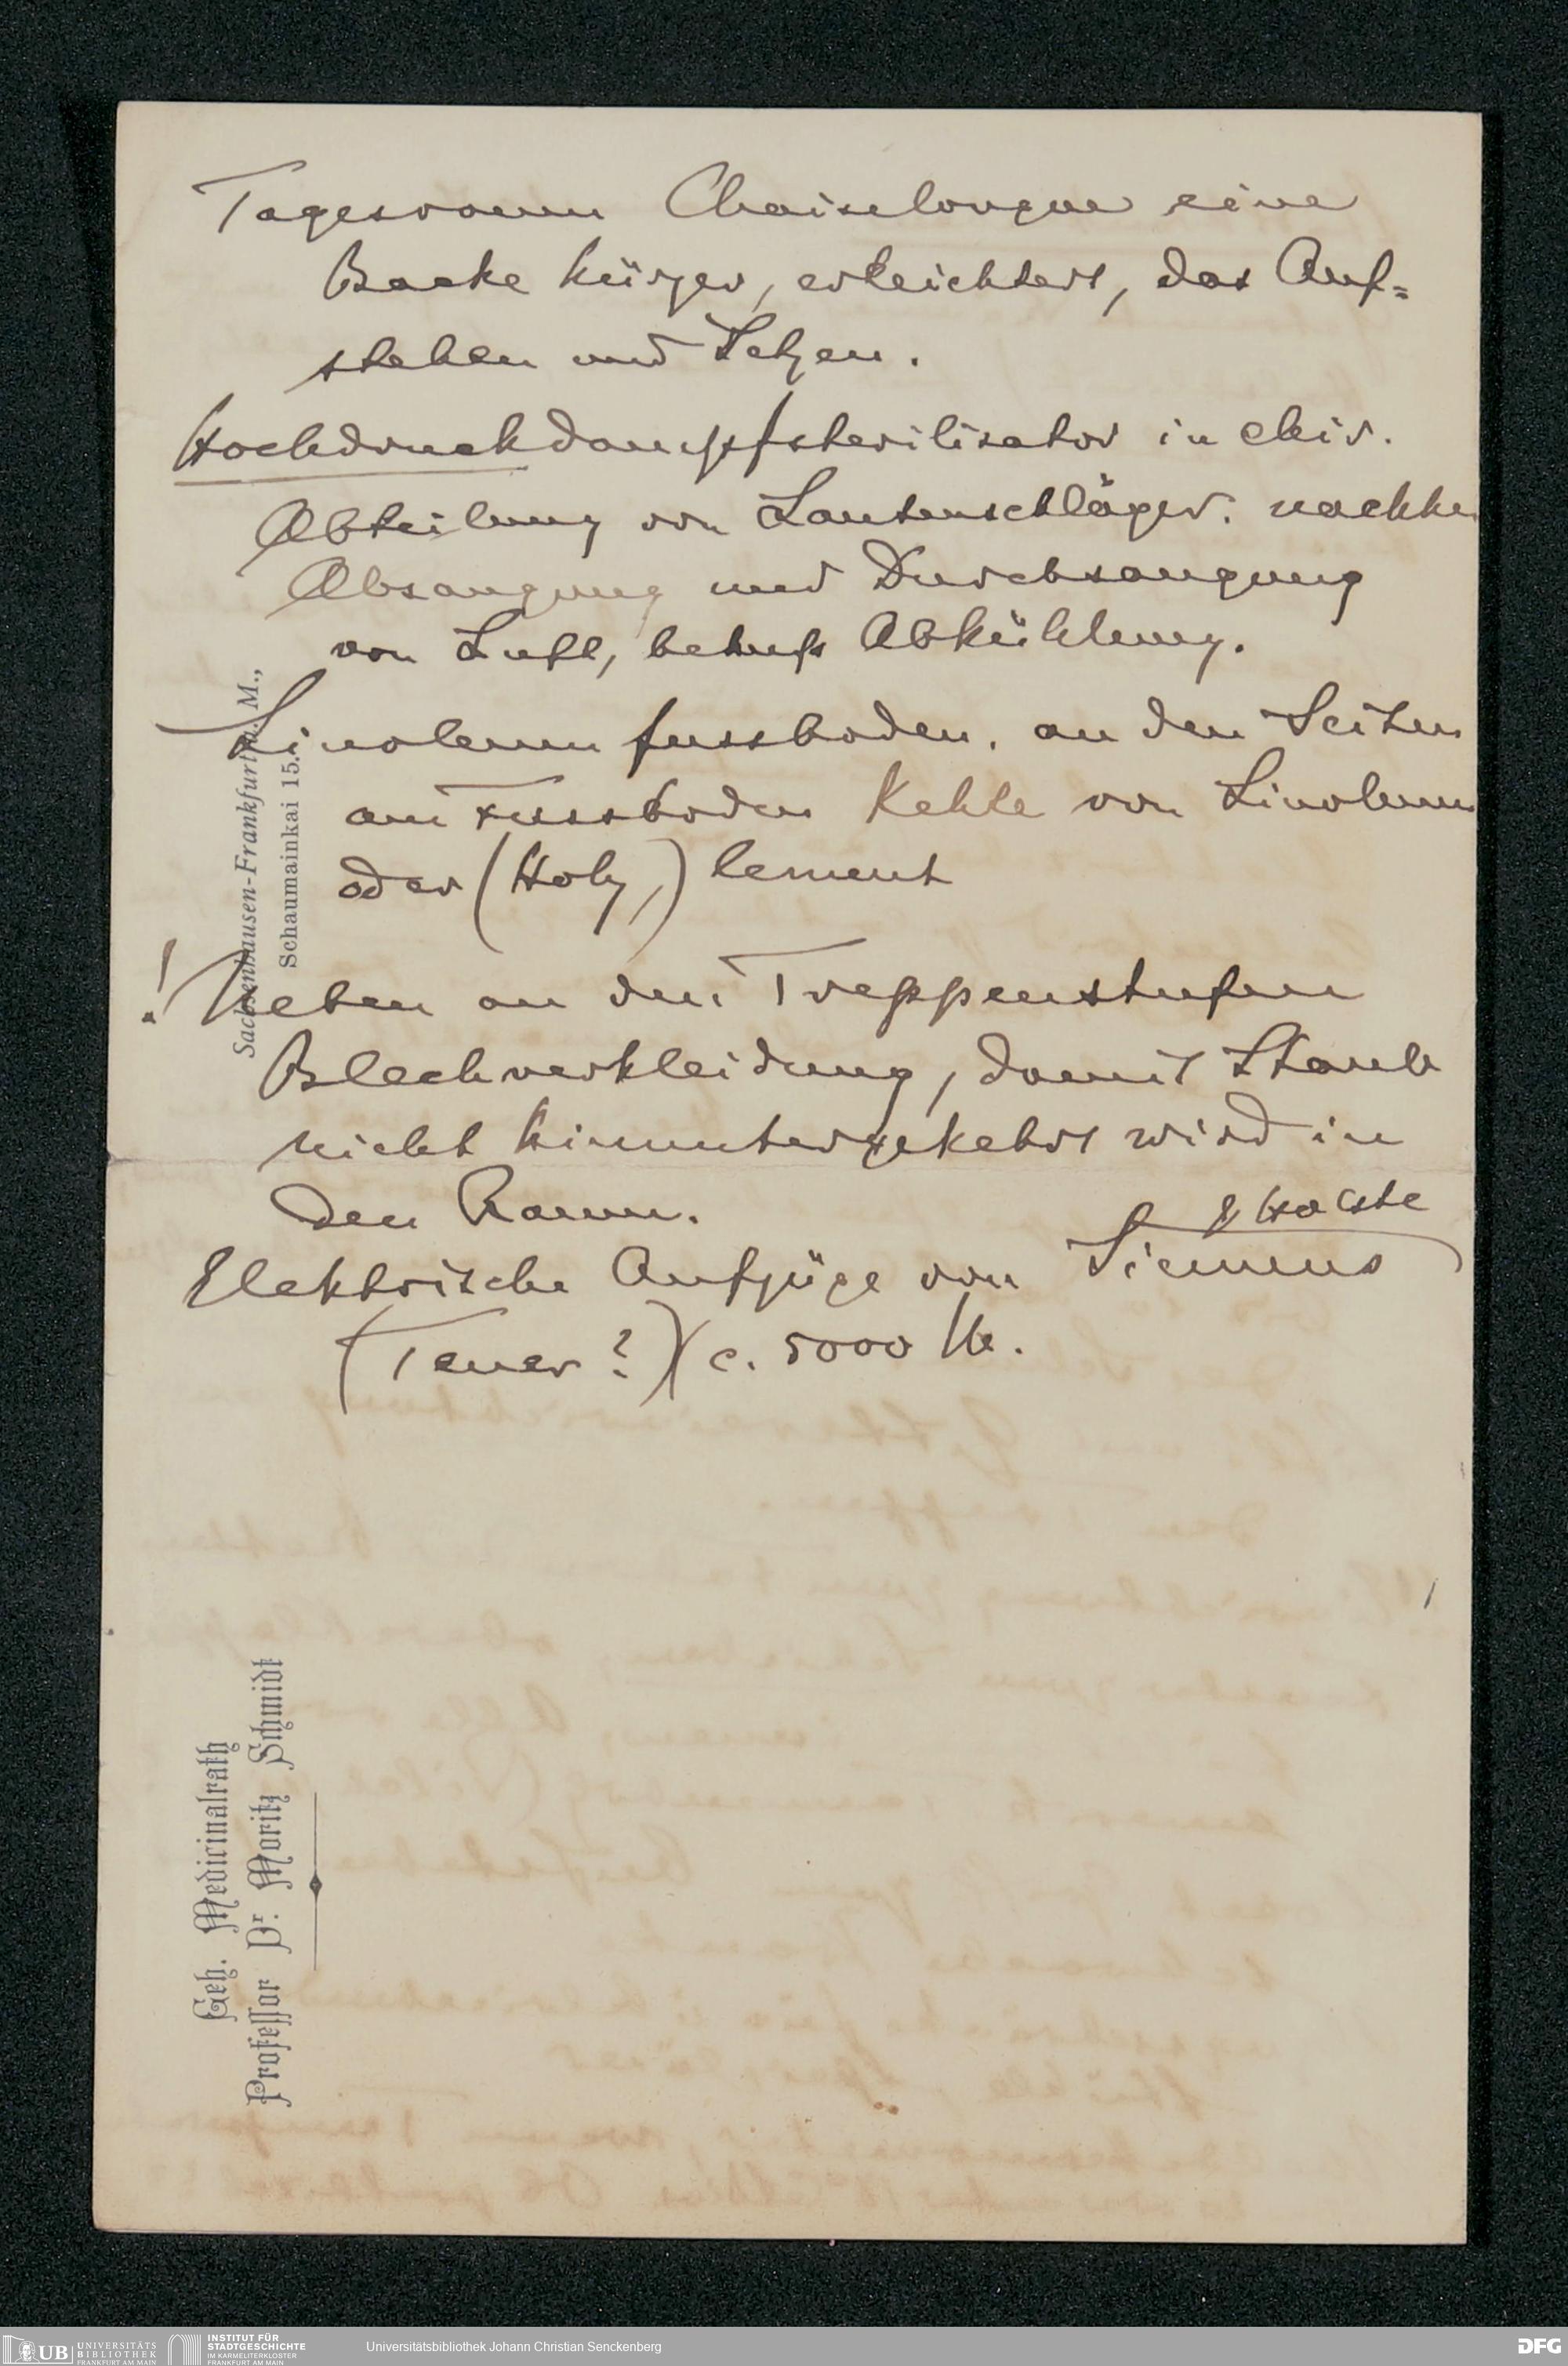 Tagesraum Chaiselongue eine
Backe kürzer, erleichtert, das Auf=
stehen und Setzen.
Hochdruckdampfsterilisator in chir.
Abteilung von Lautenschläger. nachher
Absaugung und Durchsaugung
von Luft, behufs Abkühlung.
Linoleum fussboden. an den Seiten
am Fussboden Kehle von Linoleum
oder (Holz) Cement
! Neben an den Treppenstufen
Blechverkleidung, damit Staub
nicht hinuntergekehrt wird in
den Raum.
& Halske
Elektrische Aufzüge von Siemens
(Teuer?) (c. 5000 M.
Sachsenhausen-Frankfurt a. M.,
Schaumainkai 15.
Geh. Medicinalrath
Professor Dr. Moritz Schmidt
UB UNIVERSITÄTS
BIBLIOTHEK
FRANKFURT AM MAIN
INSTITUT FÜR
STADTGESCHICHTE
IM KARMELITERKLOSTER
FRANKFURT AM MAIN
Universitätsbibliothek Johann Christian Senckenberg
DFG